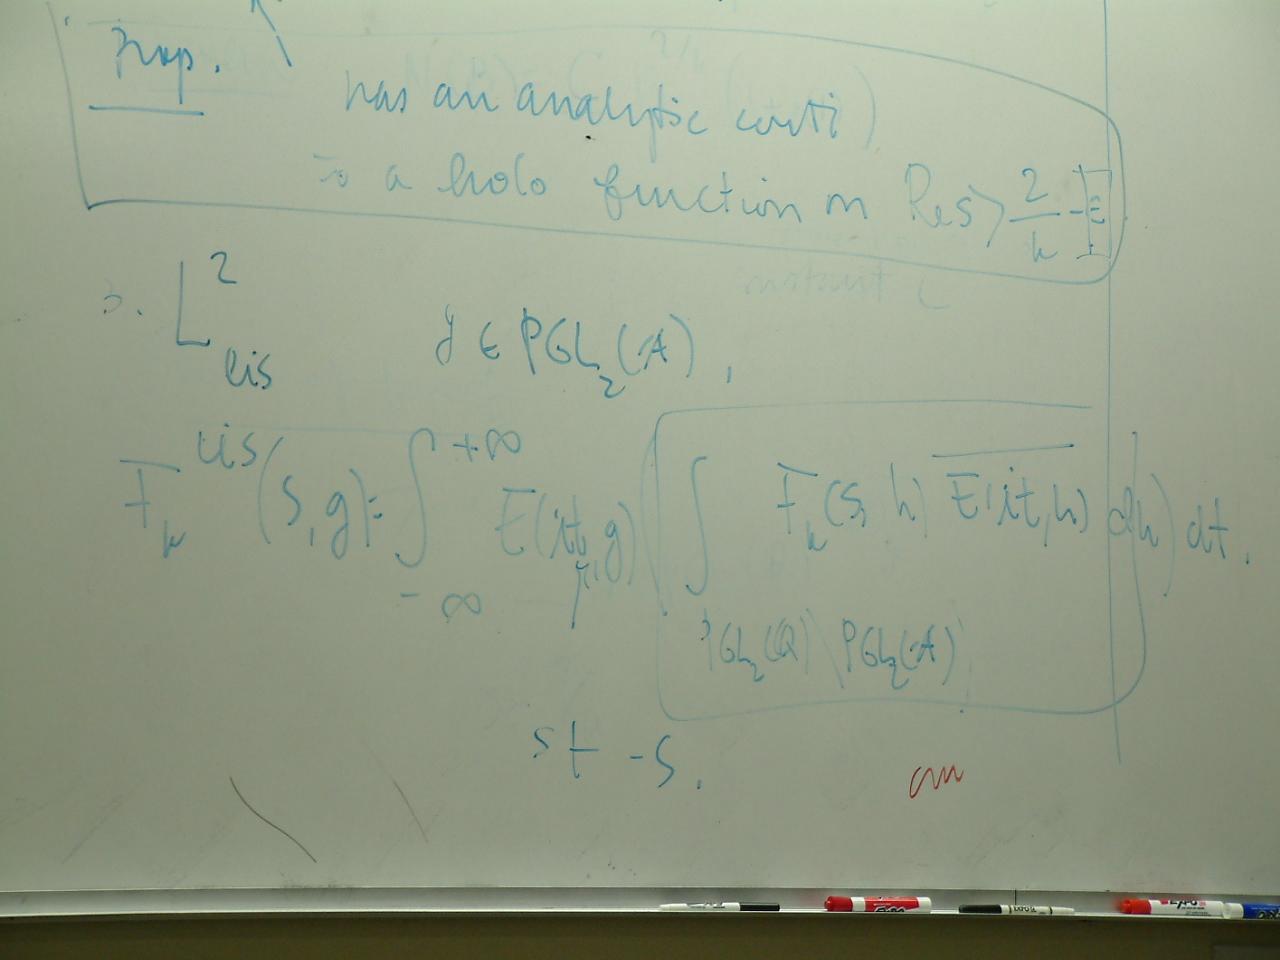 Prop.
has an analytic conti
to a holo function on Re s > 2/k - ε
3. L²_cis g ∈ PGL₂(A),
F_k^cis (s, g) = ∫_{-∞}^{+∞} E(it, g) ( ∫_{PGL₂(Q)\PGL₂(A)} F_k(s, h) \overline{E(it, h)} dh ) dt.
s ↦ -s.